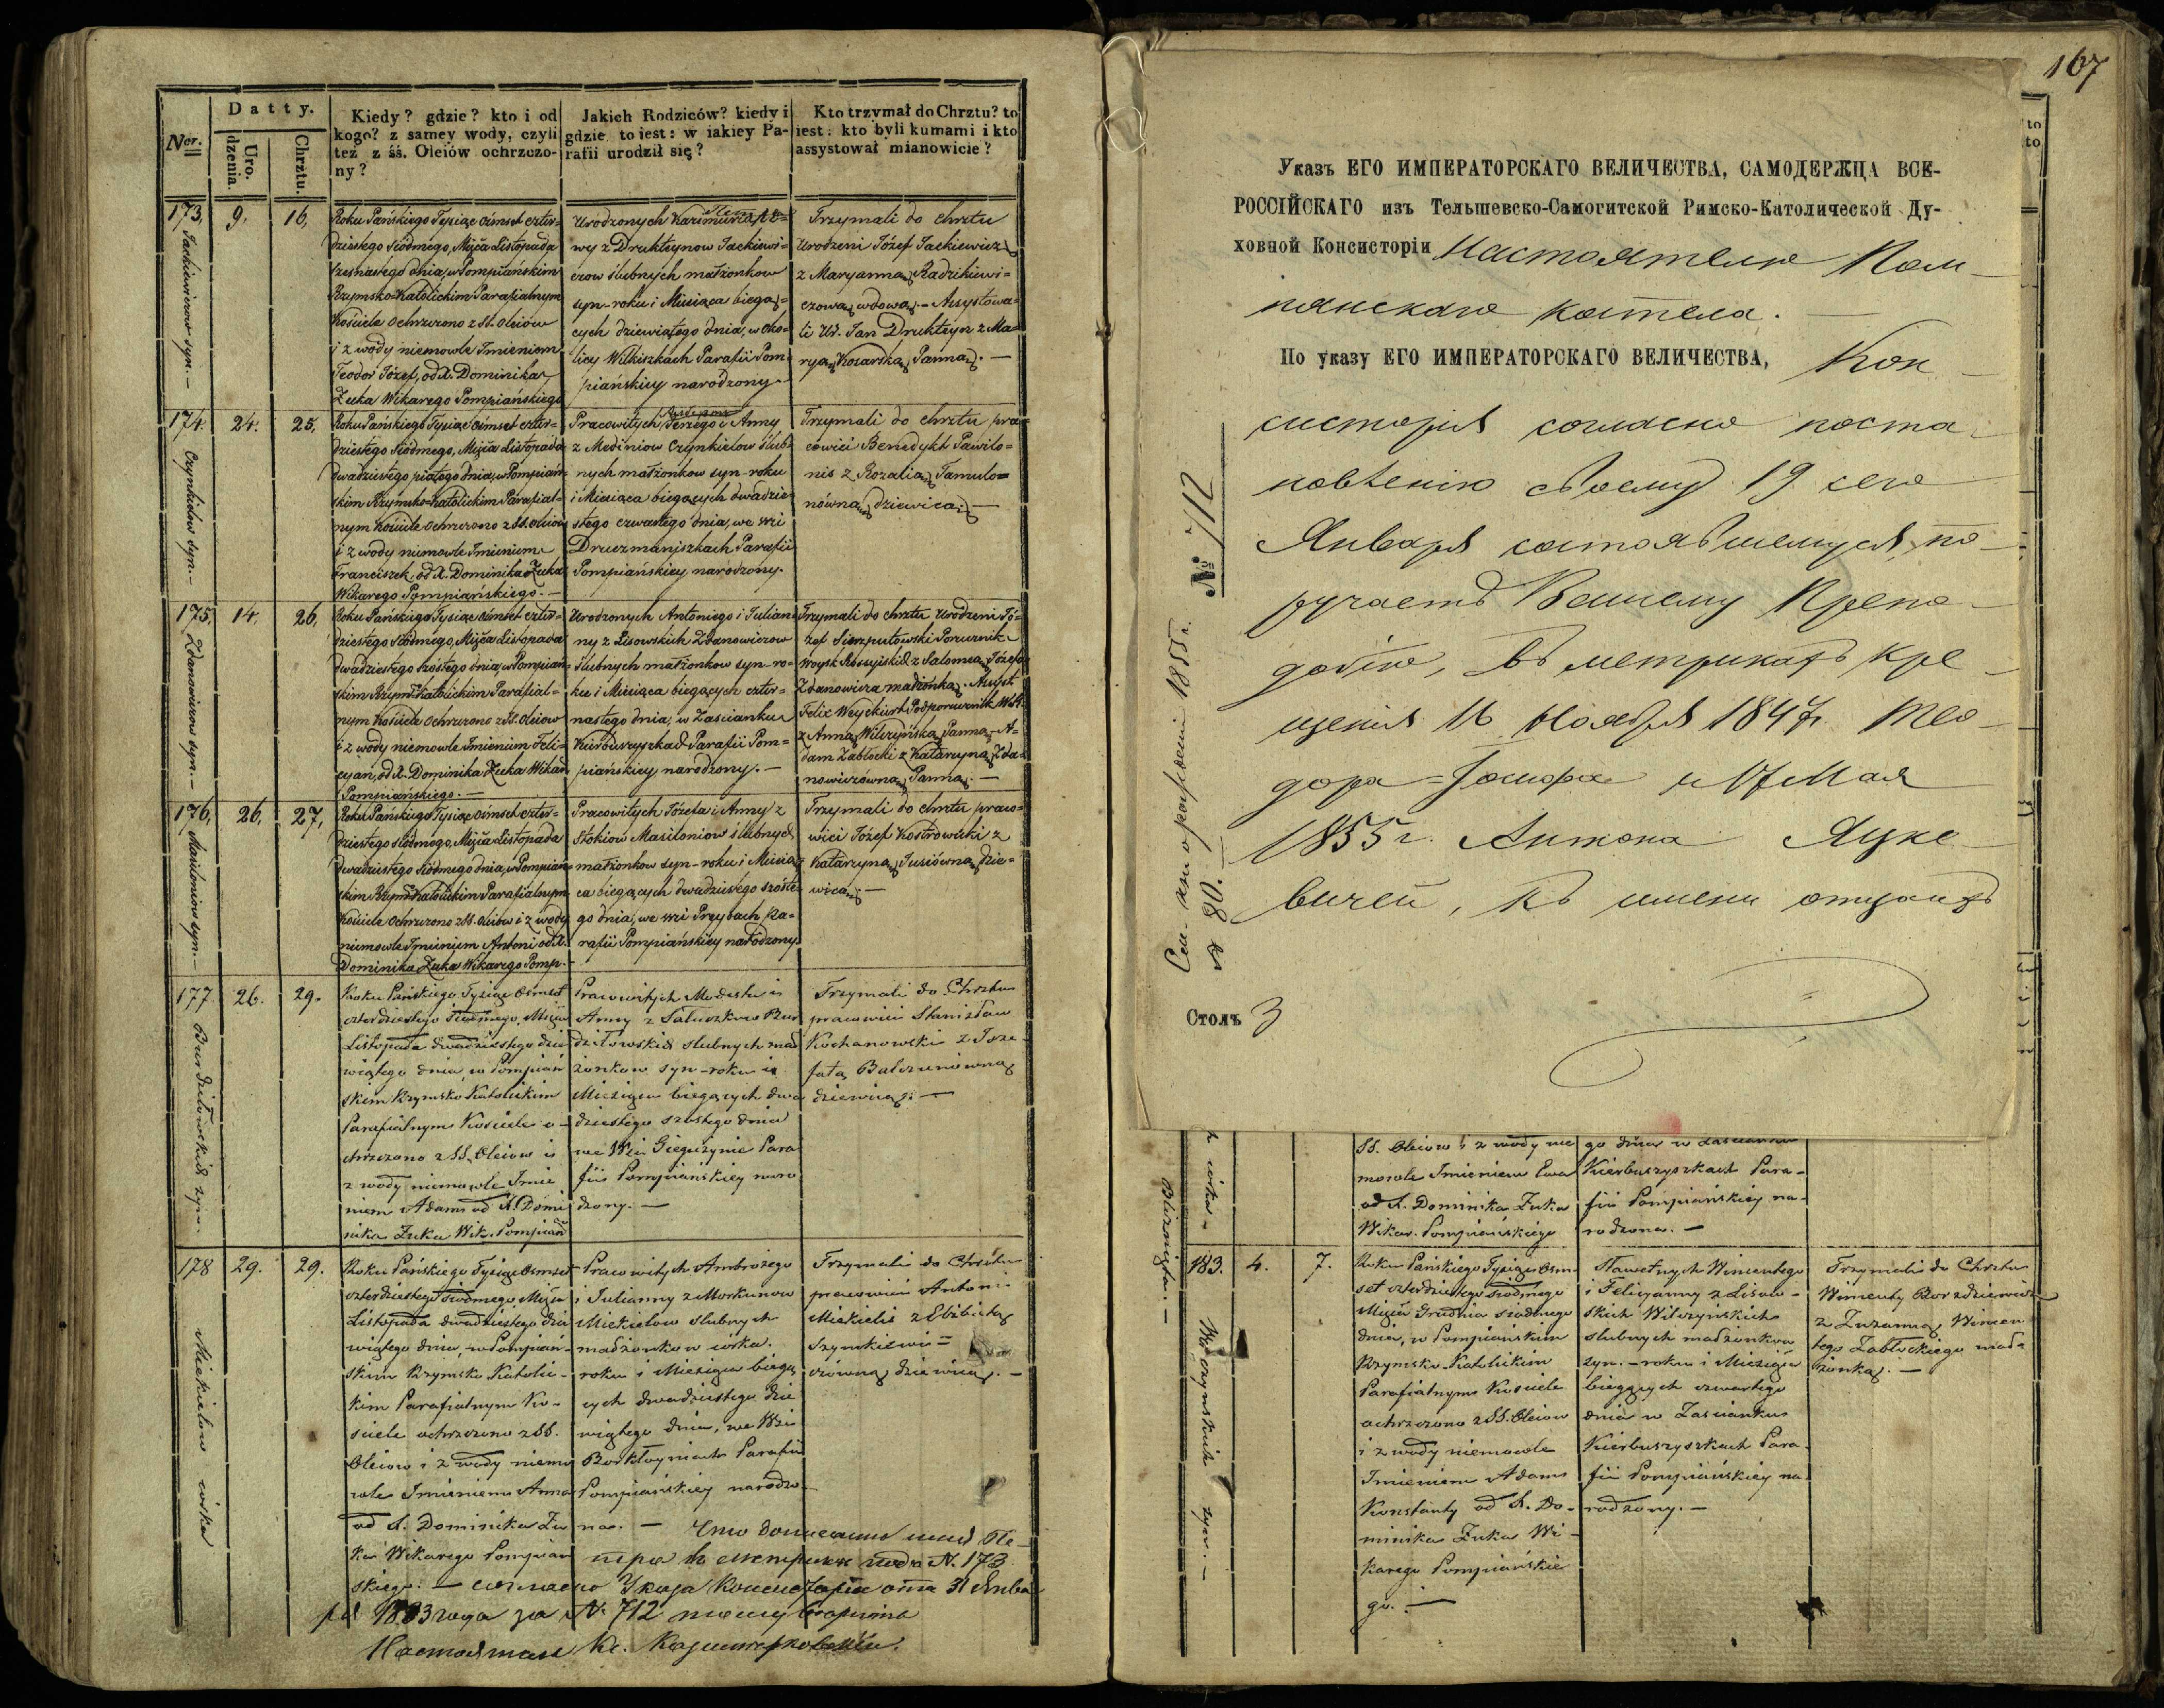 Datty.
Ner.
Uro-
dzenia.
Chrztu.
Kiedy? gdzie? kto i od
kogo? z samey wody, czyli
też z śś. Oleiów ochrzczo-
ny?
Jakich Rodziców? kiedy i
gdzie to iest: w iakiey Pa-
rafii urodził się?
Kto trzymał do Chrztu? to
iest: kto byli kumami i kto
assystował mianowicie?
173.
Jackiewiczow syn.—
9.
16.
Roku Pańskiego Tysiąc ośmset czter=
dziestego siódmego, Mśca Listopada
szesnastego dnia, w Pompiańskim
Rzymsko=Katolickim Parafialnym
Kościele ochrzczono z SS. Oleiów
i z wody niemowle Imieniem
Teodor Józef, od X. Dominika
Żuka Wikarego Pompiańskiego
Urodzonych Kazimierza
wy z Druktejnow Jackiewi=
czow ślubnych małżonkow
syn — roku i Miesiąca biegą=
cych dziewiątego dnia, w oko=
licy Wilkiszkach Parafii Pom=
piańskiey narodzony.
Trzymali do chrztu
Urodzeni Józef Jackiewicz
z Maryanną Radzikiewi=
czową wdową. — Assystowa=
li Ur. Jan Druktejn z Ma=
ryą Kozarską Panną. —
174.
Czynkielow syn.—
24.
25.
Roku Pańskiego Tysiąc ośmset czter=
dziestego siódmego, Mśca Listopada
dwadziestego piątego dnia, w Pompiań=
skim Rzymsko=Katolickim Parafial=
nym Kościele ochrzczono z SS. Oleiów
i z wody niemowle Imieniem
Franciszek, od X. Dominika Żuka
Wikarego Pompiańskiego. —
Pracowitych Jerzego i Anny
z Modiniow Czynkielow ślub=
nych małżonkow syn — roku
i Miesiąca biegących dwadzie=
stego czwartego dnia, we wsi
Druczmaniszkach Parafii
Pompiańskiey narodzony.
Trzymali do chrztu pra=
cowici Benedykt Pawilo=
nis z Rozalią Tamulo=
nówną dziewicą. —
175.
Zdanowiczow syn.—
14.
26.
Roku Pańskiego Tysiąc ośmset czter=
dziestego siódmego, Mśca Listopada
dwadziestego szóstego dnia, w Pompiań=
skim Rzym: Katolickim Parafial=
nym Kościele ochrzczono z SS. Oleiów
i z wody niemowle Imieniem Feli=
cyan, od X. Dominika Żuka Wikar.
Pompiańskiego. —
Urodzonych Antoniego i Julian=
ny z Lisowskich Zdanowiczow
ślubnych małżonkow syn — ro=
ku i Miesiąca biegących czter=
nastego dnia, w Zascianku
Kierbuszyszkach Parafii Pom=
piańskiey narodzony. —
Trzymali do chrztu Urodzeni Jó=
zef Sierzputowski Porucznik
Woysk Rossyiskich z Salomeą Józefa
Zdanowicza małżonką. Assyst
Felix Weyckiert Podporucznik W. R.
z Anną Wilczyńską Panną — A=
dam Zabłocki z Katarzyną Zda=
nowiczówną Panną. —
176.
Masiloniow syn.—
26.
27.
Roku Pańskiego Tysiąc ośmset czter=
dziestego siódmego, Mśca Listopada
dwadziestego siódmego dnia, w Pompiań=
skim Rzym: Katolickim Parafialnym
Kościele ochrzczono z SS. Oleiów i z wody
niemowle Imieniem Antoni od X.
Dominika Żuka Wikarego Pomp. —
Pracowitych Józefa i Anny z
Stokiow Masiloniow ślubnych
małżonkow syn — roku i Miesią=
ca biegących dwadziestego szóste=
go dnia, we wsi Przytach Pa=
rafii Pompiańskiey narodzony
Trzymali do chrztu praco=
wici Józef Kostrowski z
Katarzyną Jusiówną dzie=
wicą. —
177
Burdziłowskich syn.
26.
29.
Roku Pańskiego Tysiąc Ośmset
czterdziestego siodmego, Msca
Listopada dwadziestego dzie
wiątego dnia, w Pompiań
skim Rzymsko Katolickim
Parafialnym Kościele o-
chrzczono z SS. Oleiow i
z wody niemowle Imie
niem Adam od X. Domi
nika Żuka Wik. Pompiań
Pracowitych Modesta i
Anny z Satuszkow Bur
dziłowskich slubnych mał
żonkow syn — roku i
Miesiąca biegących dwa
dziestego szostego dnia
we Wsi Gieguzynie Para
fii Pompiańskiey naro
dzony. —
Trzymali do Chrztu
pracowici Stanisław
Kochanowski z Joze
fatą Balczunówną
dziewicą. —
178
Miekielow córka
29.
29.
Roku Pańskiego Tysiąc Osmset
czterdziestego siodmego Msca
Listopada dwadziestego dzie
wiątego dnia, w Pompiań-
skim Rzymsko Katolic-
kim Parafialnym Ko-
sciele ochrzczono z SS.
Oleiow i z wody niemo
wle Imieniem Anna
od X. Dominika Żu
ka Wikarego Pompian
skiego. —
Pracowitych Ambrożego
i Julianny z Morkunow
Miekielow slubnych
madżonkow corka.
roku i Miesiąca biegą
cych dwadziestego dzie
wiątego dnia, we Wsi
Borkłoyniach Parafii
Pompiańskiey narodzo-
na. —
Trzymali do Chrztu
pracowici Antoni
Miekielis z Elżbietą
Szymkiewi=
czówną dziewicą. —
согласно Указа Консисторіи отъ 31 Янва
ря 1883 года за № 712
Настоятель Кс.
167
Указъ ЕГО ИМПЕРАТОРСКАГО ВЕЛИЧЕСТВА, САМОДЕРЖЦА ВСЕ-
РОССІЙСКАГО изъ Тельшевско-Самогитской Римско-Католической Ду-
ховной Консисторіи Настоятелю Пом-
пянскаго костела. —
По указу ЕГО ИМПЕРАТОРСКАГО ВЕЛИЧЕСТВА, Кон-
систорія согласно поста-
новленію своему 19 сего
Января состоявшемуся, по-
ручаетъ Вашему Препо-
добію, въ метрикахъ кре-
щенія 16 Ноября 1847 г. Тео-
дора-Іосифа и 17 Мая
1855 г. Антона Яцке-
вичей, къ имени отца ихъ
№ 712
1855 г.
№ 80.
Столъ 3
to
to
córka -
Bliznięta. —
SS. Oleiow i z wody nie
mowle Imieniem Ewa
od X. Dominika Żuka
Wikar. Pompiańskiego
go dnia w Zascianku
Kierbuszyszkach Para-
fii Pompiańskiey na-
rodzona. —
183.
Wilczynskich syn. —
4.
7.
Roku Pańskiego Tysiąc Osm-
set czterdziestego siodmego
Msca Grudnia siodmego
dnia, w Pompianskim
Rzymsko-Katolickim
Parafialnym Kosciele
ochrzczono z SS. Oleiow
i z wody niemowle
Imieniem Adam
Konstanty od X. Do-
minika Żuka Wi-
karego Pompiańskie
go. —
Sławetnych Wincentego
i Felicyanny z Lisow-
skich Wilczyńskich
slubnych madżonkow
syn. — roku i Miesiąca
biegących czwartego
dnia w Zascianku
Kierbuszyszkach Para-
fii Pompiańskiey na
rodzony. —
Trzymali do Chrztu
Wincenty Borzdziewicz
z Zuzanną Wincen
tego Zabłockiego mad=
żonką. —